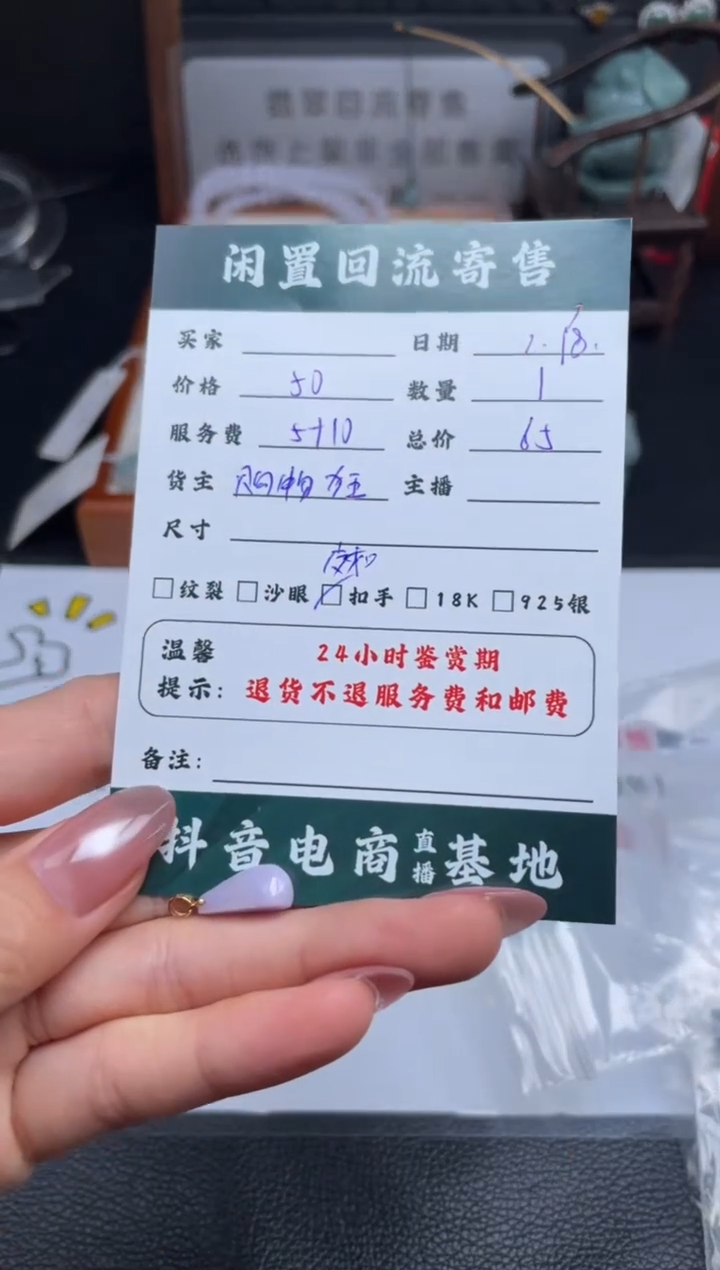 闲置回流寄售
买家 日期 1.18.
价格 50 数量 1
服务费 5+10 总价 65
货主 主播
尺寸
□纹裂 □沙眼 □扣手 □18K □925银
温馨提示: 24小时鉴赏期
退货不退服务费和邮费
备注:
抖音电商直播基地